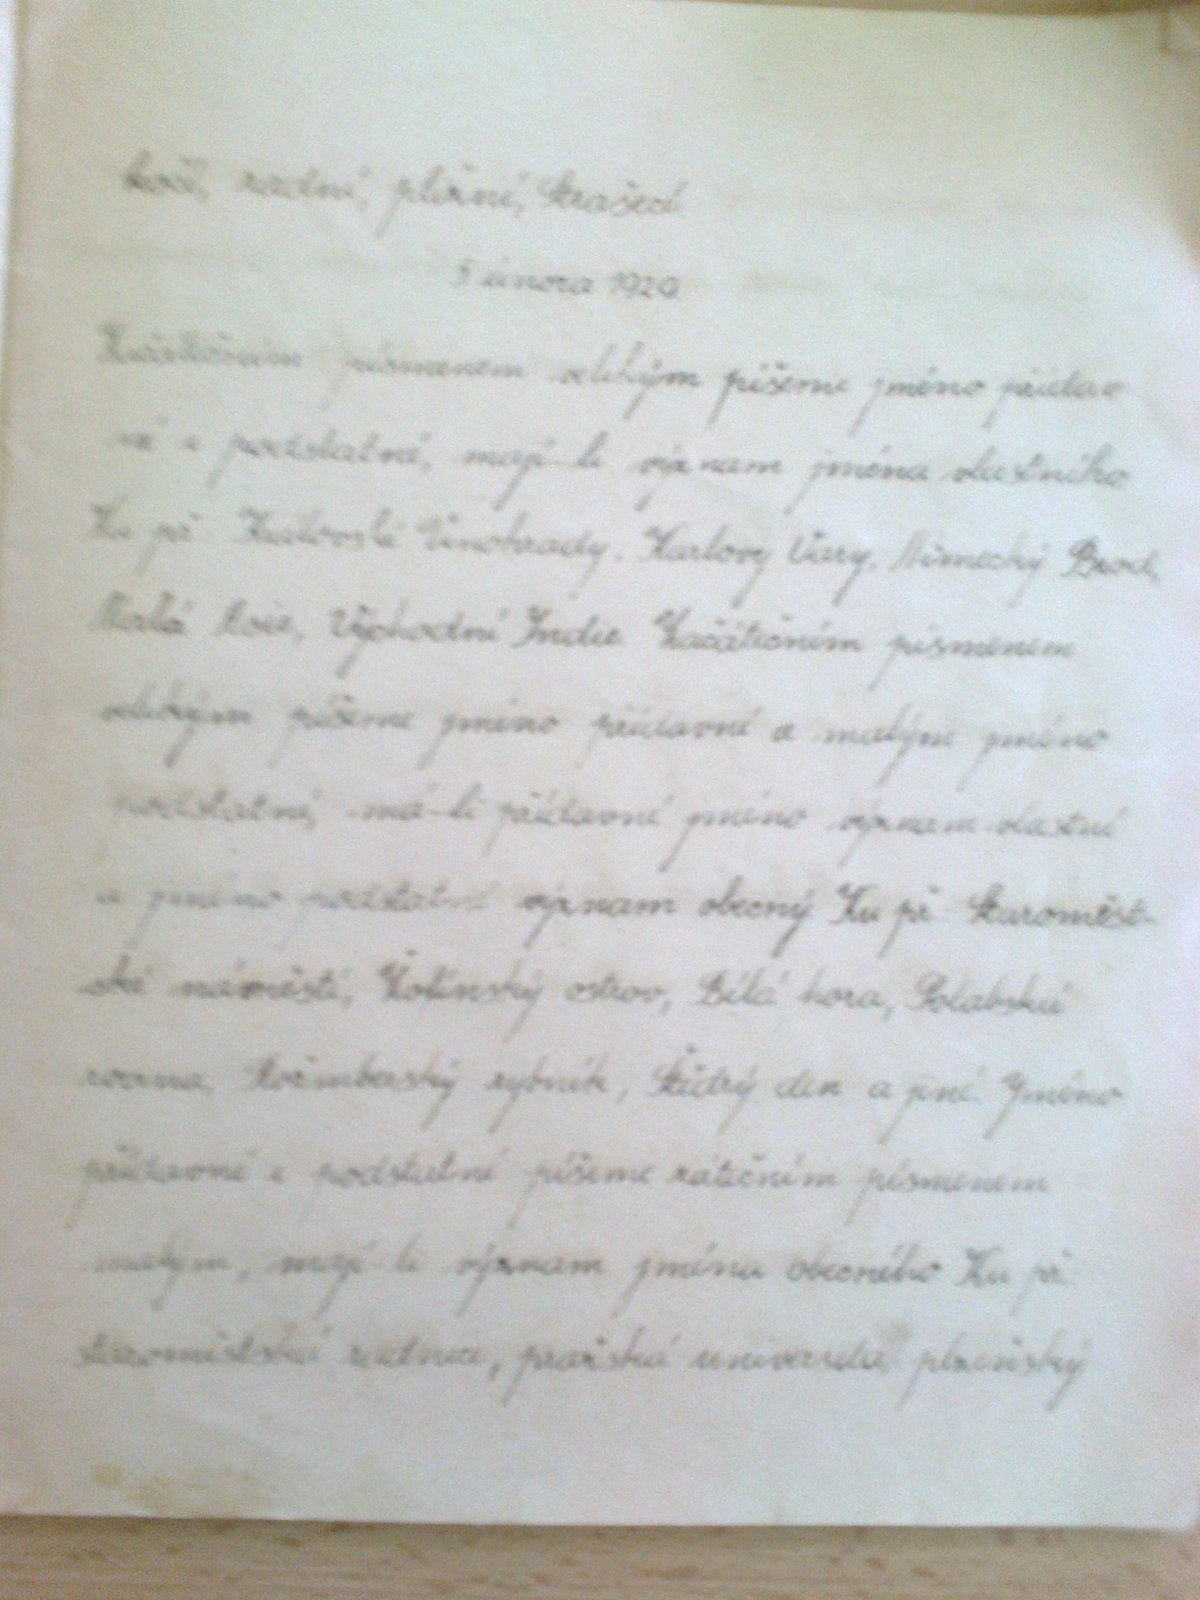 kočí, radní, plížní,
5 února 1929
Začátečním písmenem velikým píšeme jméno přídav-
né i podstatné, mají-li význam jména vlastního
Na př. Královské Vinohrady, Karlovy Vary, Německý Brod,
Malá Asie, Východní Indie Začátečním písmenem
velikým píšeme jméno přídavné a malým jméno
podstatné, má-li přídavné jméno význam vlastní
a jméno podstatné význam obecný Na př. Staroměst-
ské náměstí, Žofínský ostrov, Bílá hora, Polabská
rovina, Rožmberský rybník, Štědrý den a jiné. Jméno
přídavné i podstatné píšeme písmenem
malým, mají-li význam jména obecného Na př.
staroměstská radnice, pražská universita, plzeňský